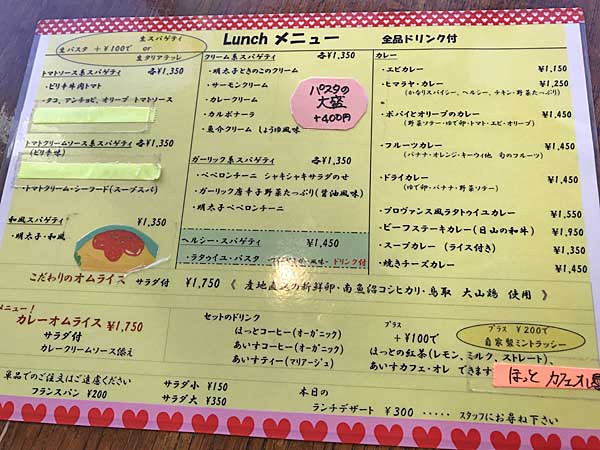 Lunch メニュー 全品ドリンク付
生スパゲティ
生パスタ +¥100で or
生タリアテッレ
トマトソース系スパゲティ 各¥1,350
・ピリ辛牛肉トマト
・タコ、アンチョビ、オリーブ トマトソース
トマトクリームソース系スパゲティ 各¥1,450
(ピリ辛味)
・トマトクリーム・シーフード(スープスパ)
和風スパゲティ ¥1,350
・明太子・和風
クリーム系スパゲティ 各¥1,350
・明太子ときのこのクリーム
・サーモンクリーム
・カレークリーム
・カルボナーラ
・魚介クリーム しょうゆ風味
パスタの
大盛
+400円
ガーリック系スパゲティ 各¥1,350
・ペペロンチーニ シャキシャキサラダのせ
・ガーリック唐辛子野菜たっぷり(醤油風味)
・明太ペペロンチーニ
ヘルシー・スパゲティ ¥1,450
・ラタゥイユ・パスタ 風味・ドリンク付
カレー
・エビカレー ¥1,150
・ヒマラヤ・カレー ¥1,250
(かなりスパイシー、ヘルシー、チキン・野菜たっぷり)
・ポパイとオリーブのカレー ¥1,450
(野菜ソテー・ゆで卵・トマト・エビ・オリーブ)
・フルーツカレー ¥1,450
(バナナ・オレンジ・キーウィ他 旬のフルーツ)
・ドライカレー ¥1,450
(ゆで卵・バナナ・野菜ソテー)
・プロヴァンス風ラタトゥイユカレー ¥1,550
・ビーフステーキカレー(日山の和牛) ¥1,950
・スープカレー (ライス付き) ¥1,350
・焼きチーズカレー ¥1,450
こだわりのオムライス サラダ付 ¥1,750 《 産地直送の新鮮卵・南魚沼コシヒカリ・鳥取 大山鶏 使用 》
メニュー!
カレーオムライス ¥1,750
サラダ付
カレークリームソース添え
セットのドリンク
ほっとコーヒー(オーガニック)
あいすコーヒー(オーガニック)
あいすティー(マリアージュ)
プラス
+¥100で
ほっとの紅茶(レモン、ミルク、ストレート)、
あいすカフェ・オレ できます
プラス ¥200で
自家製ミントラッシー
ほっと カフェオレ
単品でのご注文はご遠慮ください
フランスパン ¥200
サラダ小 ¥150
サラダ大 ¥350
本日の
ランチデザート ¥300 ‥‥‥ スタッフにお尋ね下さい